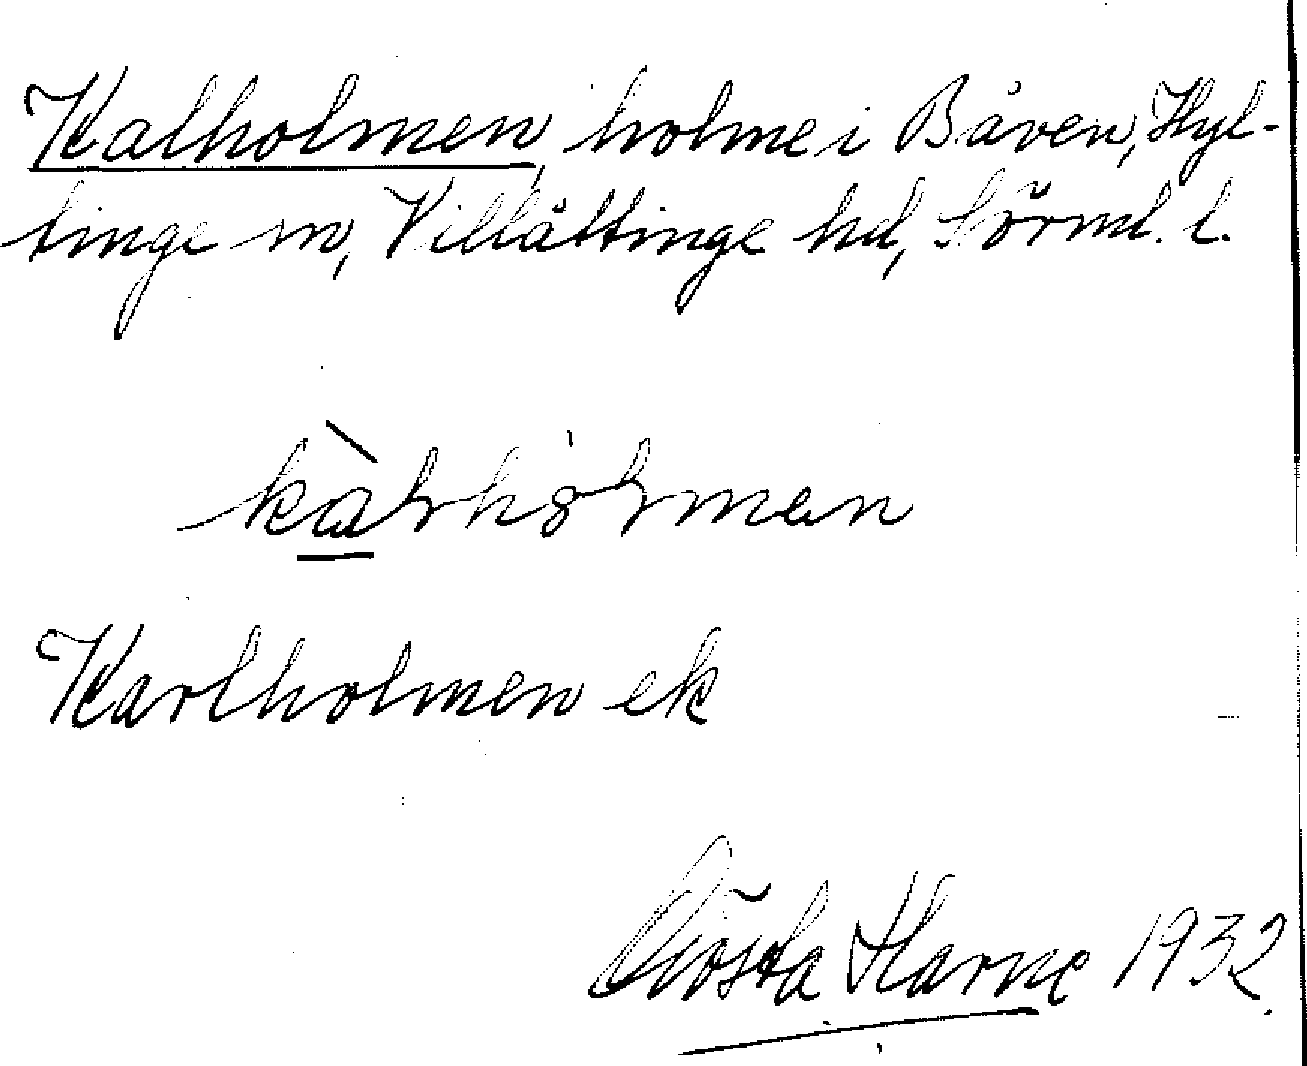 Kalholmen, holme i Båven, Hyl-
tinge sn, Villåttinge hd, Sörml. l.
kàɽhɵɽmen
Karlholmen ek
Gösta Harne 1932.